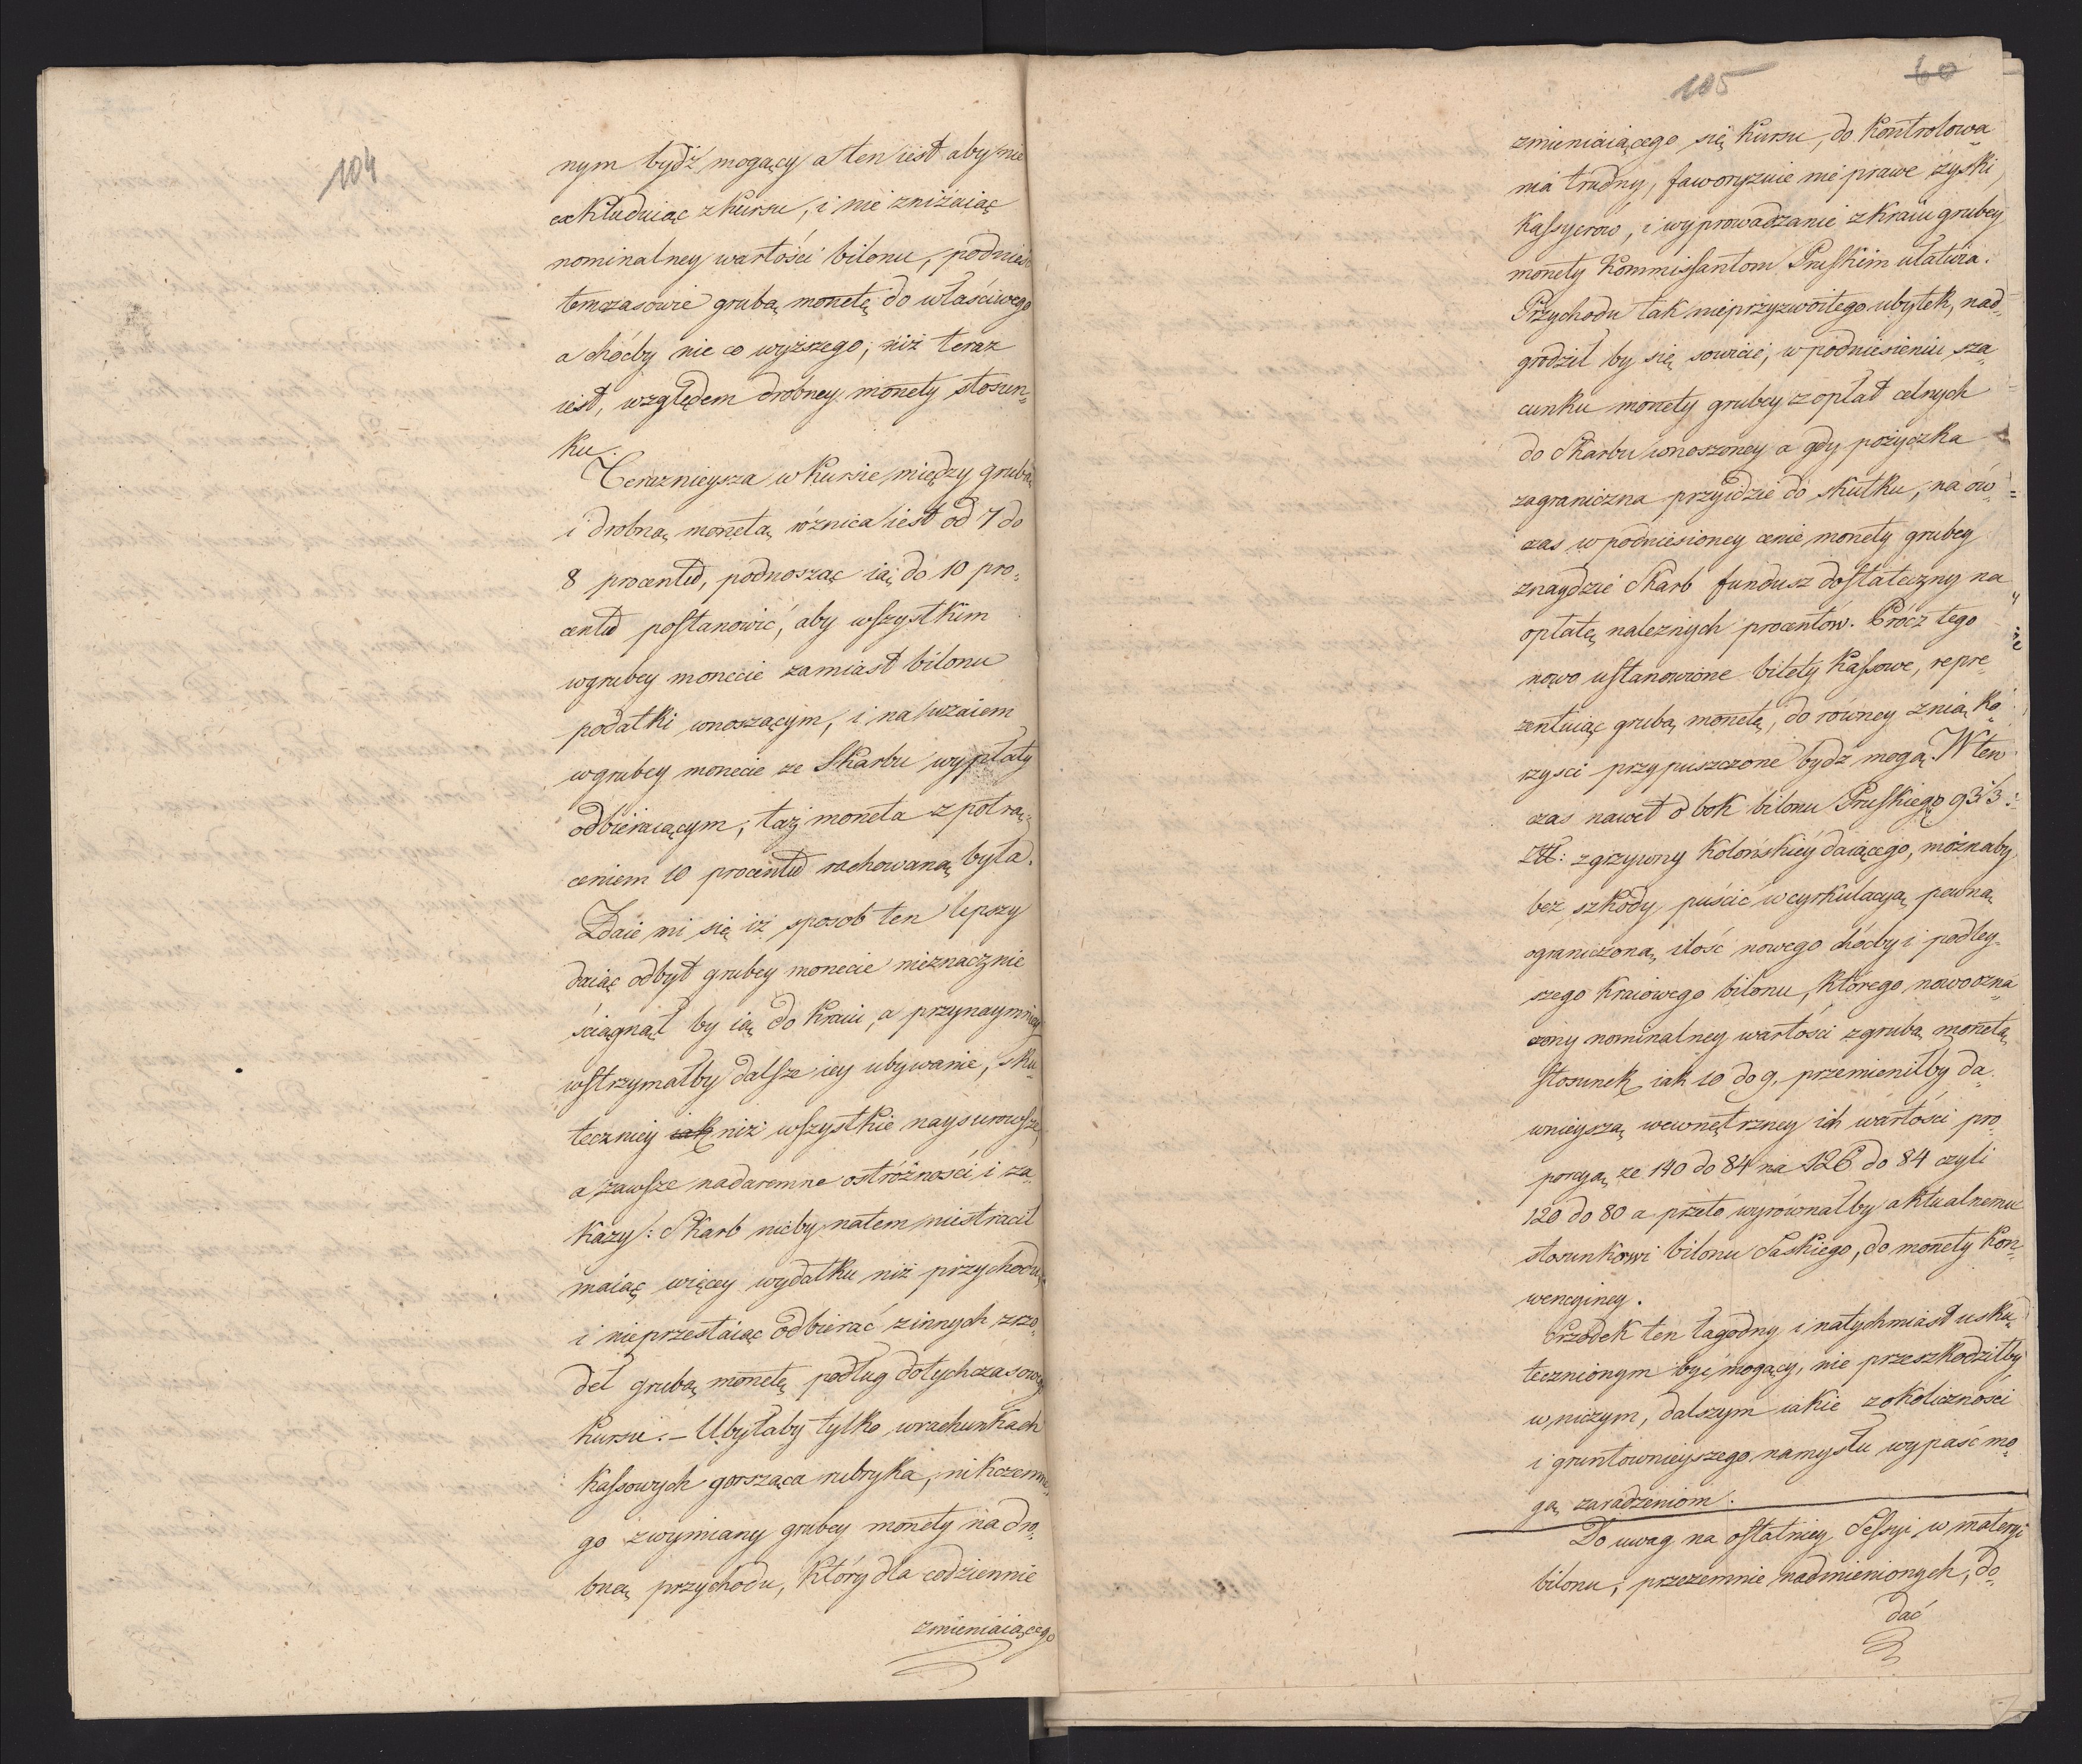 104
nym bydź mogący a ten iest aby nie
exkluduiąc z kursu, i nie zniżaiąc
nominalney wartości bilonu, podnieść
temczasowie grubą monetę do właściwego
a choćby nie co wyższego, niż teraz
iest, względem drobney monety stosun=
ku.
Teraznieysza w kursie między grubą
i drobną monetą różnica iest od 7 do
8 procentu, podnosząc ią do 10 pro=
centu postanowić, aby wszystkim
w grubey monecie zamiast bilonu
podatki wnoszącym, i nawzaiem
w grubey monecie ze Skarbu wypłaty
odbieraiącym, taż moneta z potrą=
ceniem 10 procentu rachowaną była.
Zdaie mi się iż sposob ten lepszy
daiąc odbyt grubey monecie nieznacznie
ściągnął by ią do kraiu, a przynaymniey
wstrzymałby dalsze iey ubywanie, sku=
teczniey iak niż wszystkie naysurowsze,
a zawsze nadaremne ostróżności i za=
kazy: Skarb nicby na tem niestracił
maiąc więcey wydatku niż przychodu,
i nieprzestaiąc odbierać z innych zrzo=
deł grubą monetę podług dotychczasowego
kursu. – Ubyłaby tylko w rachunkach
kassowych gorsząca rubryka, nikczemne=
go z wymiany grubey monety na dro=
bną przychodu, który dla codziennie
zmieniaiącego
105
60
zmieniaiącego się kursu, do kontrolowa=
nia trudny, faworyzuie nie prawe zyski
Kassyerów, i wyprowadzanie z kraiu grubey
monety Kommissantom Pruskim ułatwia.
Przychodu tak nieprzyzwoitego ubytek, nad=
grodził by się sowicie, w podniesieniu sza=
cunku monety grubey z opłat celnych
do Skarbu wnoszoney a gdy pożyczka
zagraniczna przyidzie do skutku, na ów=
czas w podniesioney cenie monety grubey
znaydzie Skarb fundusz dostateczny na
opłatę należnych procentów. Prócz tego
nowo ustanowione bilety kassowe, repre=
zentuiąc grubą monetę, do równey z nią ko=
rzyści przypuszczone bydź mogą. W ten
czas nawet obok bilonu Pruskiego 93⅓
z grzywny Kolońskiéy daiącego, możnaby
bez szkody puścić w cyrkulacyą pewną
ograniczoną ilość nowego choćby i podley=
szego kraiowego bilonu, którego nowo ozna=
czony nominalney wartości z grubą monetą
stosunek iak 10 do 9, przemieniłby da=
wnieyszą wewnętrzney ich wartości pro=
porcyą ze 140 do 84 na 126 do 84 czyli
120 do 80 a przeto wyrównałby aktualnemu
stosunkowi bilonu Saskiego, do monety kon=
wencyiney.
Srzodek ten łagodny i natychmiast usku=
tecznionym być mogący, nie przeszkodziłby
w niczym, dalszym iakie z okoliczności
i gruntownieyszego namysłu wypaść mo=
gą zaradzeniom.
Do uwag na ostatniey Sessyi w materyi
bilonu, przezemnie nadmienionych, do=
dać